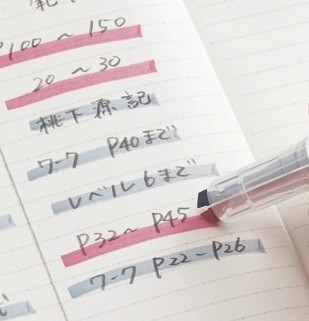 P100～150
20～30
桃下源記
ワーク P40まで
レベル6まで
P32～P45
ワーク P22-P26
ど